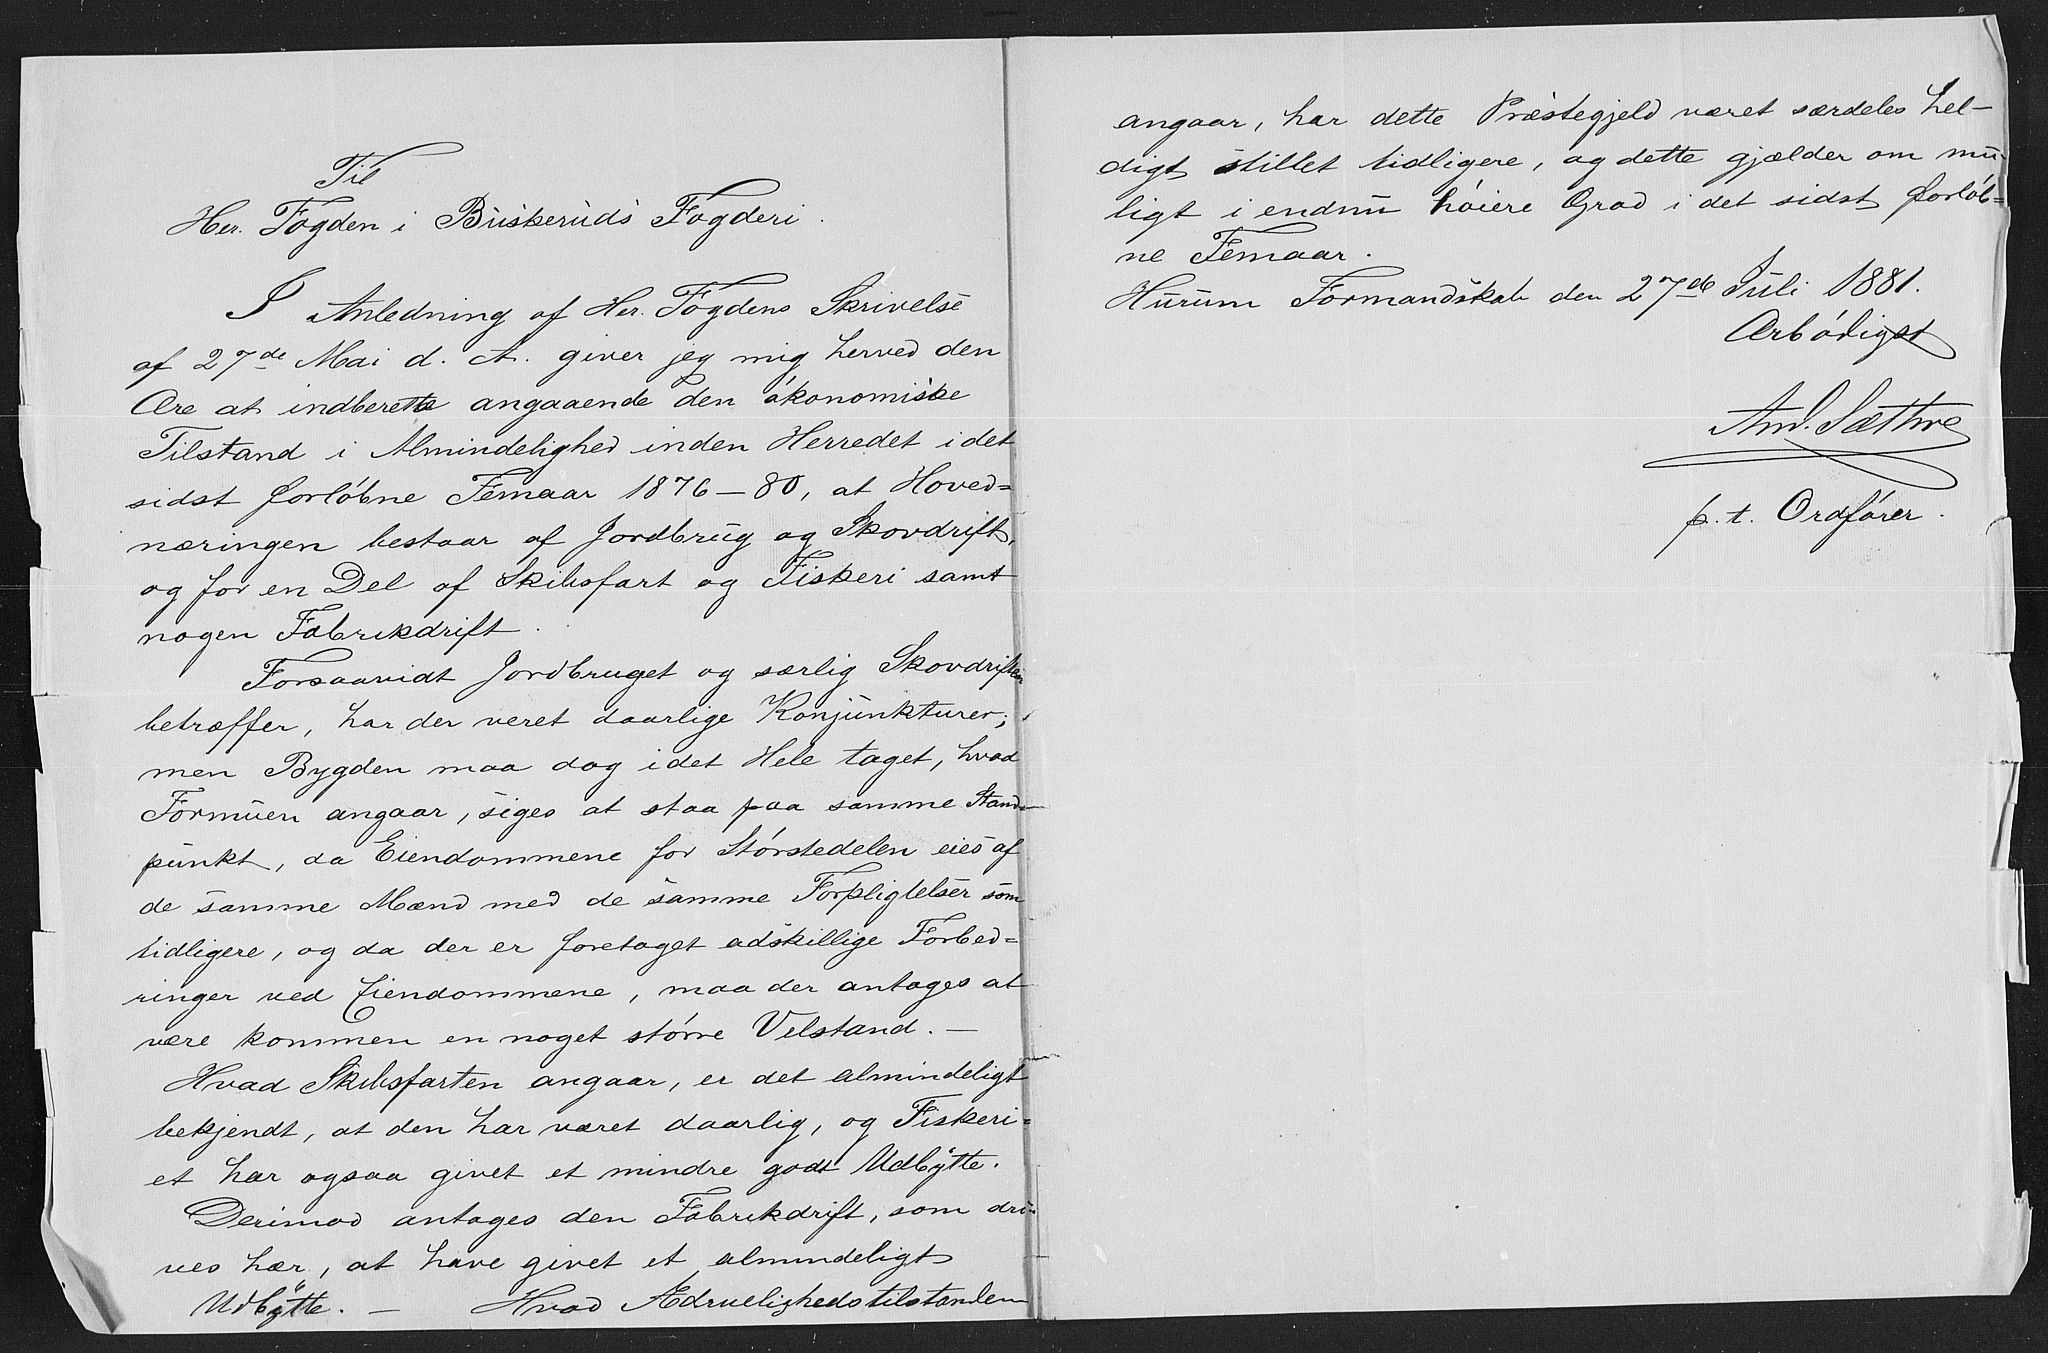 Til
Her. Fogden i Buskeruds Fogderi.
I Anledning af Her. Fogdens Skrivelse
af 27de Mai d. A. giver jeg mig herved den
Ære at indberette angaaende den økonomiske
Tilstand i Almindelighed inden Herredet i det
sidst forløbne Femaar 1876-80, at Hoved=
næringen bestaar af Jordbrug og Skovdrift,
og for en Del af Skibsfart og Fiskeri samt
nogen Fabrikdrift.
Forsaavidt Jordbruget og særlig Skovdriften
betræffer, har der veret daarlige Konjunkturer;
men Bygden maa dog i det Hele taget, hvad
Formuen angaar, siges at staa paa samme Stand=
punkt, da Eiendommene for Størstedelen eies af
de samme Mænd med de samme Forpligtelser som
tidligere, og da der er foretaget adskillige Forbed=
ringer ved Eiendommene, maa der antages at
være kommen en noget større Velstand. —
Hvad Skibsfarten angaar, er det almindeligt
bekjendt, at den har været daarlig, og Fiskeri=
et har ogsaa givet et mindre godt Udbytte.
Derimod antages den Fabrikdrift, som dri=
ves hær, at have givet et almindeligt
Udbytte. — Hvad Ædruelighedstilstanden
angaar, har dette Præstegjeld været særdeles hel-
digt stillet tidligere, og dette gjælder om mu-
ligt i endnu høiere Grad i det sidst forløb=
ne Femaar.
Hurum Formandskab den 27de Juli 1881.
Ærbødigst
And. Sæthre
p. t. Ordfører.